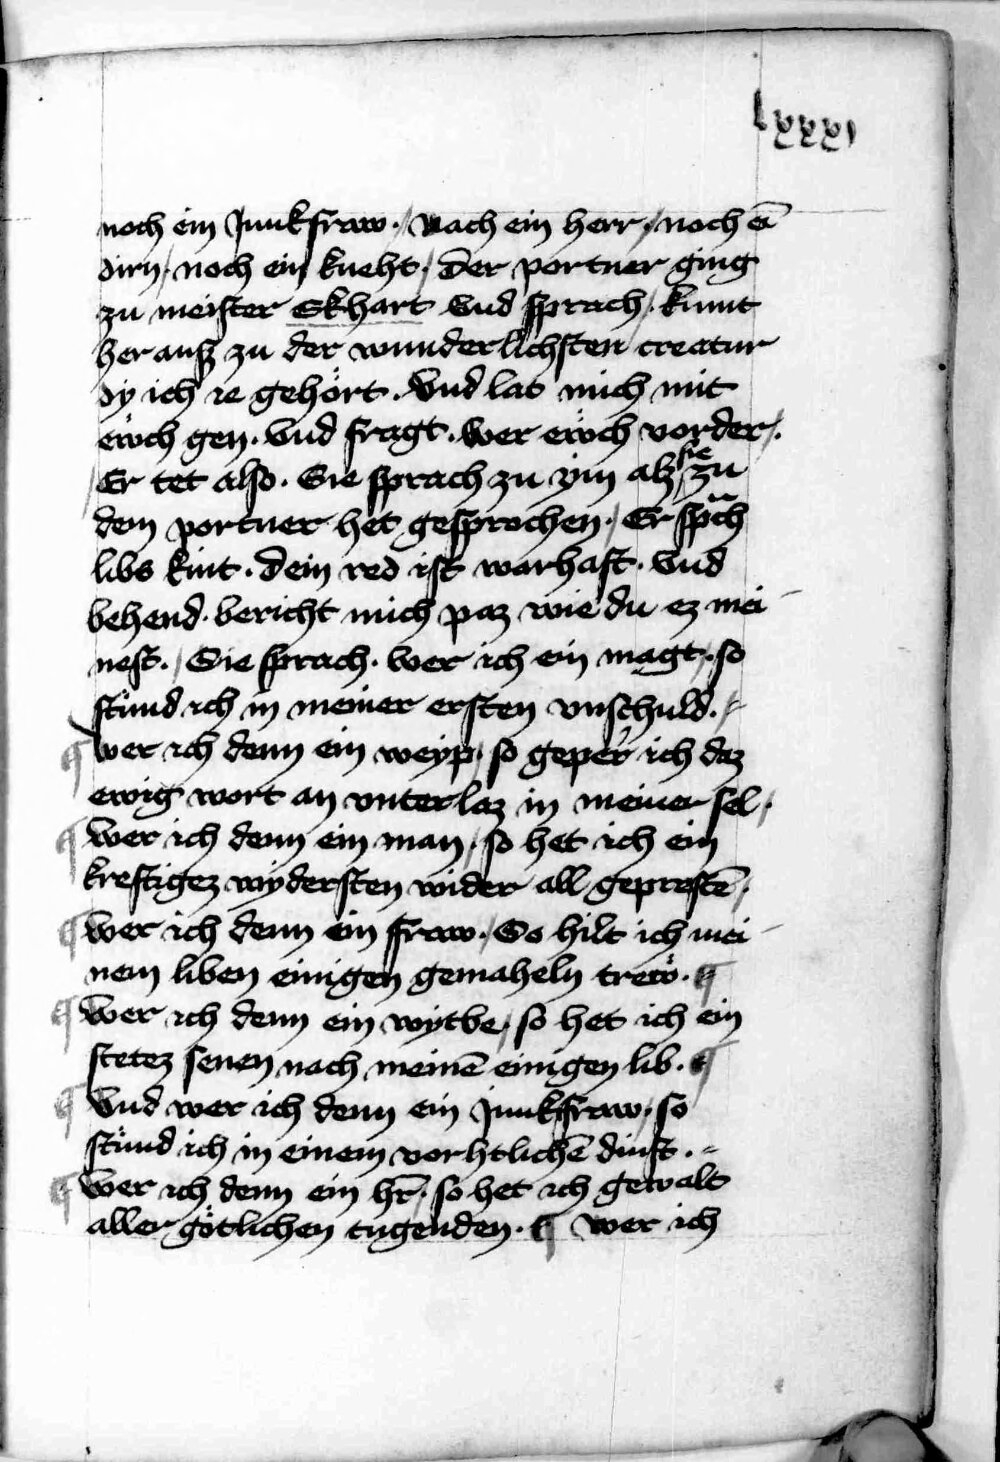 lxxxi
noch ein Junkfraw · / Nach ein herr · / noch eī
dirn / · noch ein kneht / · Der portner ging
zu meister Ekhart Vnd sprach / · kumt
her auß zu der wunderlichsten creatur
dy ich ie gehört · Vnd lat mich mit
ewch gen · Vnd fragt · wer ewch vorder / ·
Er tet also · Sie sprach zu ym alz sie zu
dem portner het gesprochen · / Er sp̄ch
libs kint · dein red ist warhaft · Vnd
behend · bericht mich paz wie du ez mei
nest · / Sie sprach · wer ich ein magt / · so
stünd ich in meiner ersten vnschuld ·
¶ wer ich denn ein weyp / · so geper ich daz
ewig wort an vnterlaz in meiner sel / ·
¶ Wer ich denn ein man / · so het ich ein
kreftigez wydersten wider all geprestē / ·
¶ wer ich denn ein fraw · / So hilt ich mei
nem liben einigen gemaheln trew · ¶
¶ Wer ich denn ein wytbe / · so het ich ein
stetez senen nach meinē einigen lib · ¶
¶ Vnd wer ich denn ein Junkfraw / · so
stünd ich in einem vorhtlichē dinst ·
¶ Wer ich denn ein hr̄ / · so het ich gewalt
aller götlichen tugenden · ¶ wer ich